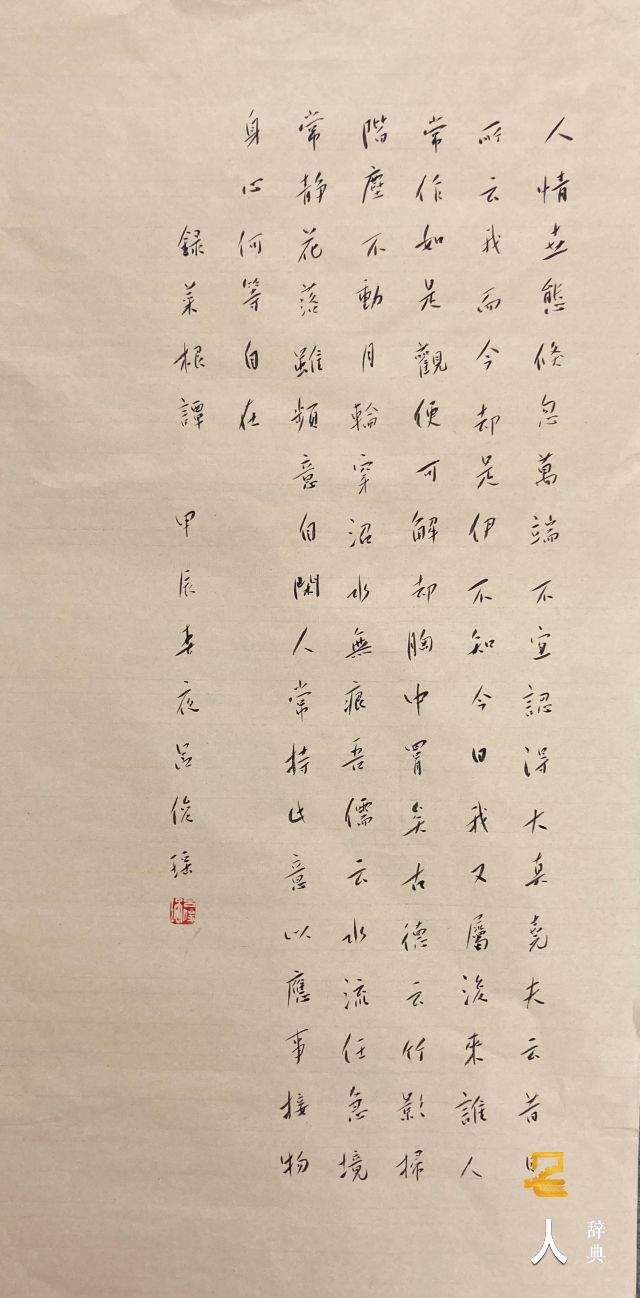 人情世態倏忽萬端不宜認得大真堯夫云昔日
所云我而今却是伊不知今日我又屬後來誰人
常作如是觀便可解却胸中罥矣古德云竹影掃
階塵不動月輪穿沼水無痕吾儒云水流任急境
常静花落雖頻意自閑人常持此意以應事接物
身心何等自在
録菜根譚 甲辰春夜呂俊
人
辞典